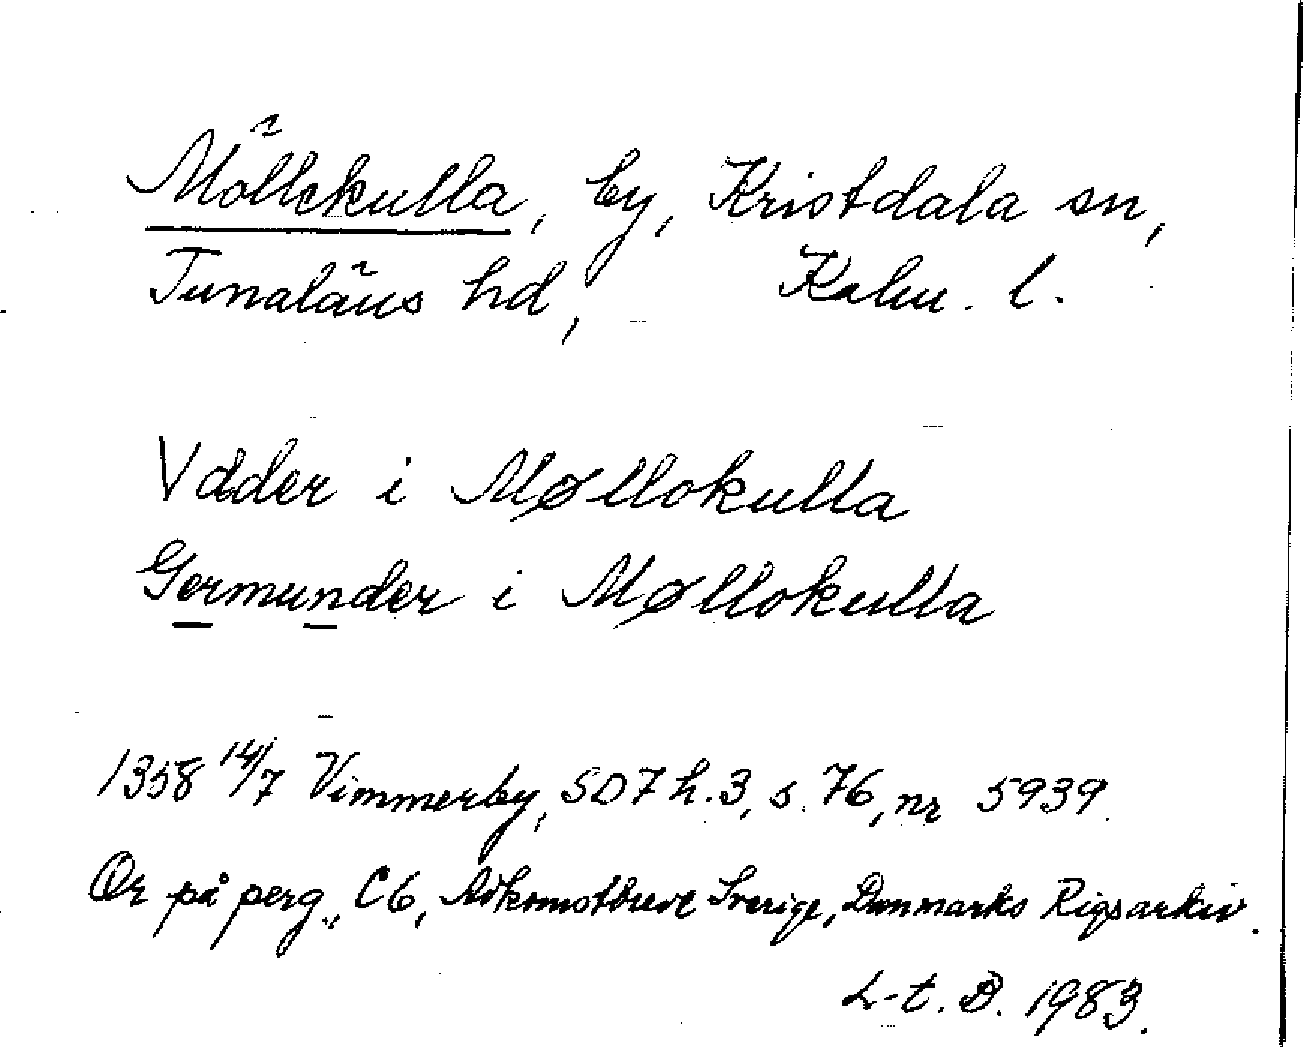 Möllekulla, by, Kristdala sn,
Tunaläns hd, Kalm. l.
Vdder i Møllokulla
Germunder i Møllokulla
1358 14/7 Vimmerby, SD7 h.3, s. 76, nr 5939.
Or på perg., C6, Adkomstbreve Sverige, Danmarks Rigsarkiv.
L-t. D. 1983.